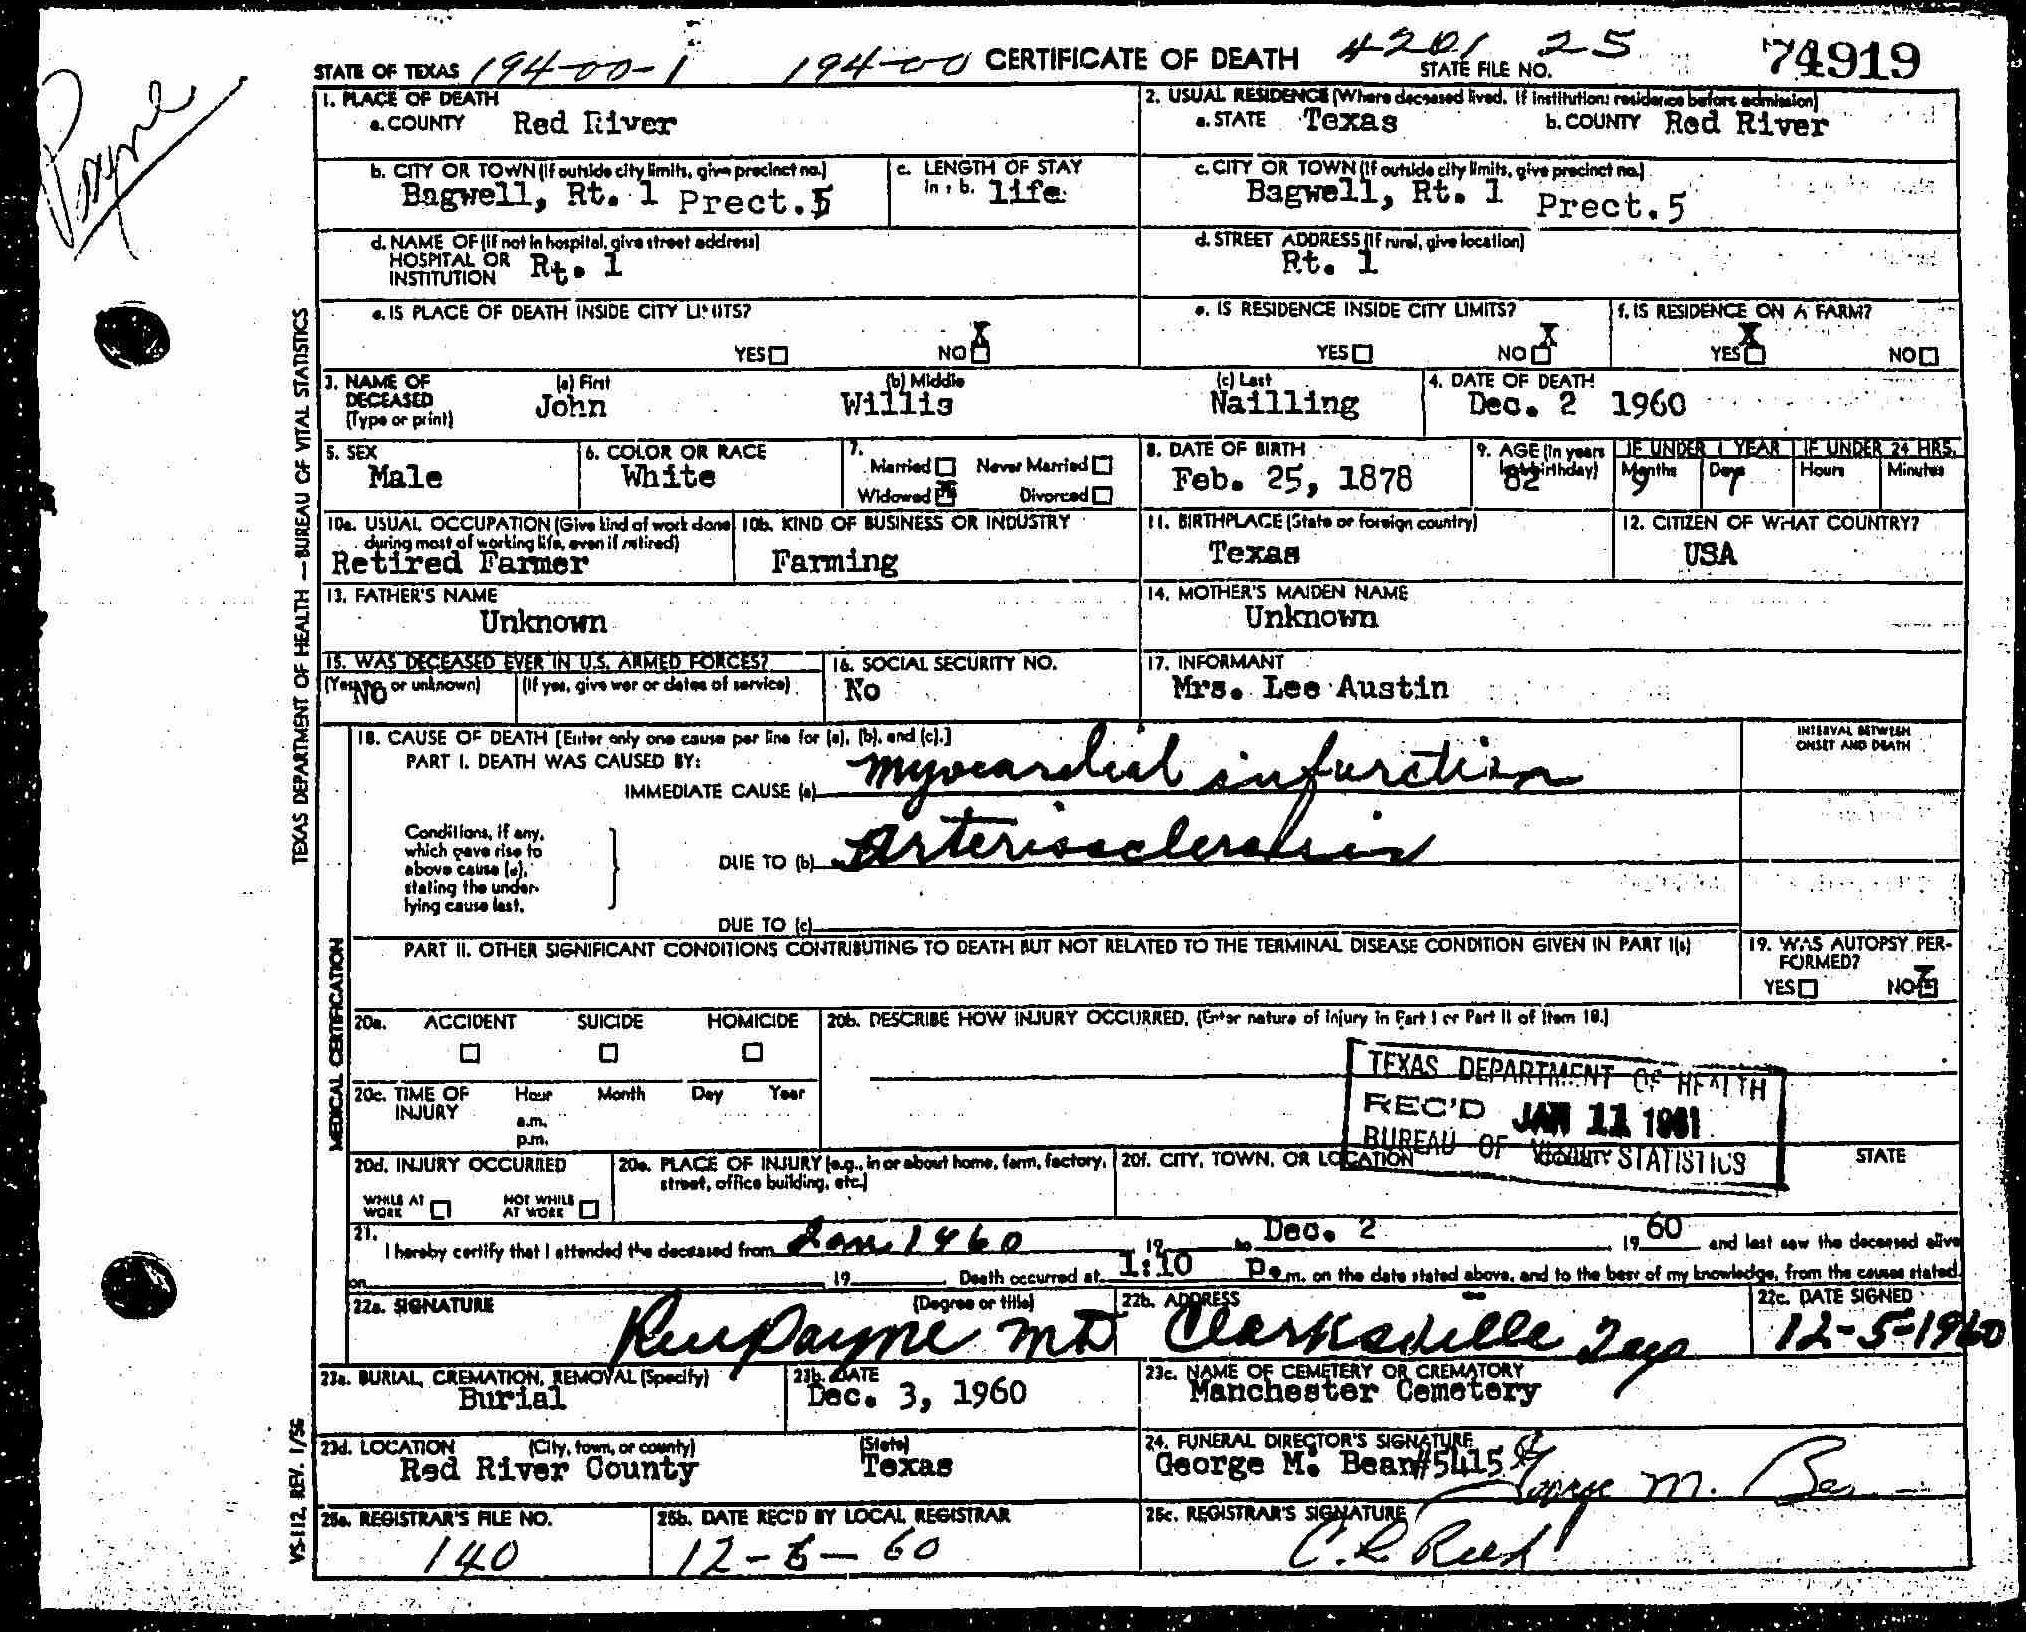 Payne
STATE OF TEXAS 194-00-1 194-00 CERTIFICATE OF DEATH 4201 25 STATE FILE NO. 74919
1. PLACE OF DEATH
a. COUNTY Red River
2. USUAL RESIDENCE (Where deceased lived. If institution: residence before admission)
a. STATE Texas b. COUNTY Red River
b. CITY OR TOWN (If outside city limits, give precinct no.)
Bagwell, Rt. 1 Prect. 5
c. LENGTH OF STAY
in 1 b. life
c. CITY OR TOWN (If outside city limits, give precinct no.)
Bagwell, Rt. 1 Prect. 5
d. NAME OF (If not in hospital, give street address)
HOSPITAL OR
INSTITUTION Rt. 1
d. STREET ADDRESS (If rural, give location)
Rt. 1
e. IS PLACE OF DEATH INSIDE CITY LIMITS?
YES NO X
e. IS RESIDENCE INSIDE CITY LIMITS?
YES NO X
f. IS RESIDENCE ON A FARM?
YES X NO
3. NAME OF
DECEASED
(Type or print)
(a) First
John
(b) Middle
Willis
(c) Last
Nailling
4. DATE OF DEATH
Dec. 2 1960
5. SEX
Male
6. COLOR OR RACE
White
7.
Married Never Married
Widowed X Divorced
8. DATE OF BIRTH
Feb. 25, 1878
9. AGE (In years
last birthday)
82
IF UNDER 1 YEAR
Months 9 Days 7
IF UNDER 24 HRS.
Hours Minutes
10a. USUAL OCCUPATION (Give kind of work done
during most of working life, even if retired)
Retired Farmer
10b. KIND OF BUSINESS OR INDUSTRY
Farming
11. BIRTHPLACE (State or foreign country)
Texas
12. CITIZEN OF WHAT COUNTRY?
USA
13. FATHER'S NAME
Unknown
14. MOTHER'S MAIDEN NAME
Unknown
15. WAS DECEASED EVER IN U.S. ARMED FORCES?
(Yes, no, or unknown) No (If yes, give war or dates of service)
16. SOCIAL SECURITY NO.
No
17. INFORMANT
Mrs. Lee Austin
18. CAUSE OF DEATH [Enter only one cause per line for (a), (b), and (c).]
PART I. DEATH WAS CAUSED BY:
IMMEDIATE CAUSE (a) Myocardial infarction
INTERVAL BETWEEN
ONSET AND DEATH
Conditions, if any,
which gave rise to
above cause (a),
stating the under-
lying cause last.
DUE TO (b) Arteriosclerosis
DUE TO (c)
PART II. OTHER SIGNIFICANT CONDITIONS CONTRIBUTING TO DEATH BUT NOT RELATED TO THE TERMINAL DISEASE CONDITION GIVEN IN PART I(a)
19. WAS AUTOPSY PER-
FORMED?
YES NO X
20a. ACCIDENT SUICIDE HOMICIDE
20b. DESCRIBE HOW INJURY OCCURRED. (Enter nature of injury in Part I or Part II of Item 18.)
20c. TIME OF
INJURY
Hour Month Day Year
a.m.
p.m.
TEXAS DEPARTMENT OF HEALTH
REC'D JAN 11 1961
BUREAU OF STATISTICS
20d. INJURY OCCURRED
WHILE AT
WORK
NOT WHILE
AT WORK
20e. PLACE OF INJURY (e.g., in or about home, farm, factory,
street, office building, etc.)
20f. CITY, TOWN, OR LOCATION COUNTY STATE
21. I hereby certify that I attended the deceased from Jan 1960 19 to Dec. 2 1960 and last saw the deceased alive
on 19 . Death occurred at 1:10 P.m. on the date stated above, and to the best of my knowledge, from the causes stated.
22a. SIGNATURE (Degree or title)
Payne MD
22b. ADDRESS
Clarksville Tex
22c. DATE SIGNED
12-5-1960
23a. BURIAL, CREMATION, REMOVAL (Specify)
Burial
23b. DATE
Dec. 3, 1960
23c. NAME OF CEMETERY OR CREMATORY
Manchester Cemetery
23d. LOCATION (City, town, or county) (State)
Red River County Texas
24. FUNERAL DIRECTOR'S SIGNATURE
George M. Bean#5415 George M. Bean
25a. REGISTRAR'S FILE NO.
140
25b. DATE REC'D BY LOCAL REGISTRAR
12-6-60
25c. REGISTRAR'S SIGNATURE
TEXAS DEPARTMENT OF HEALTH — BUREAU OF VITAL STATISTICS
MEDICAL CERTIFICATION
VS-112, REV. 1/56